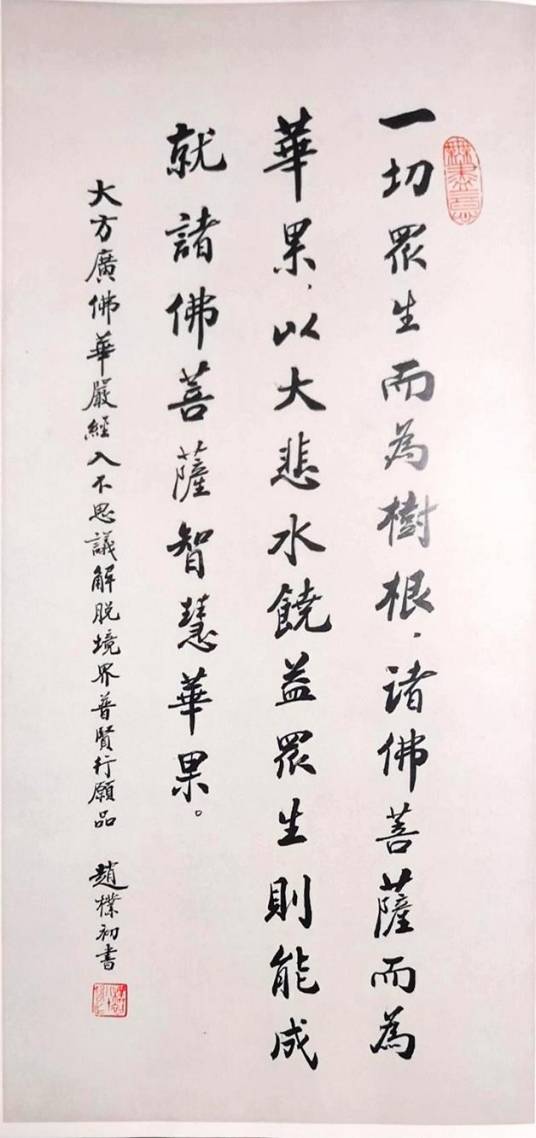 一切眾生而為樹根，諸佛菩薩而為
華果，以大悲水饒益眾生則能成
就諸佛菩薩智慧華果。
大方廣佛華嚴經入不思議解脫境界普賢行願品 趙樸初書